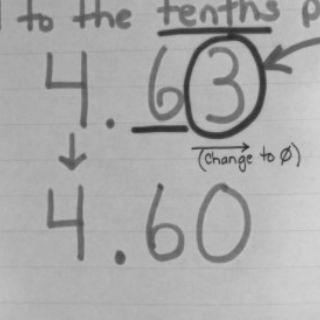 to the tenths p
4.63
(change to 0)
4.60